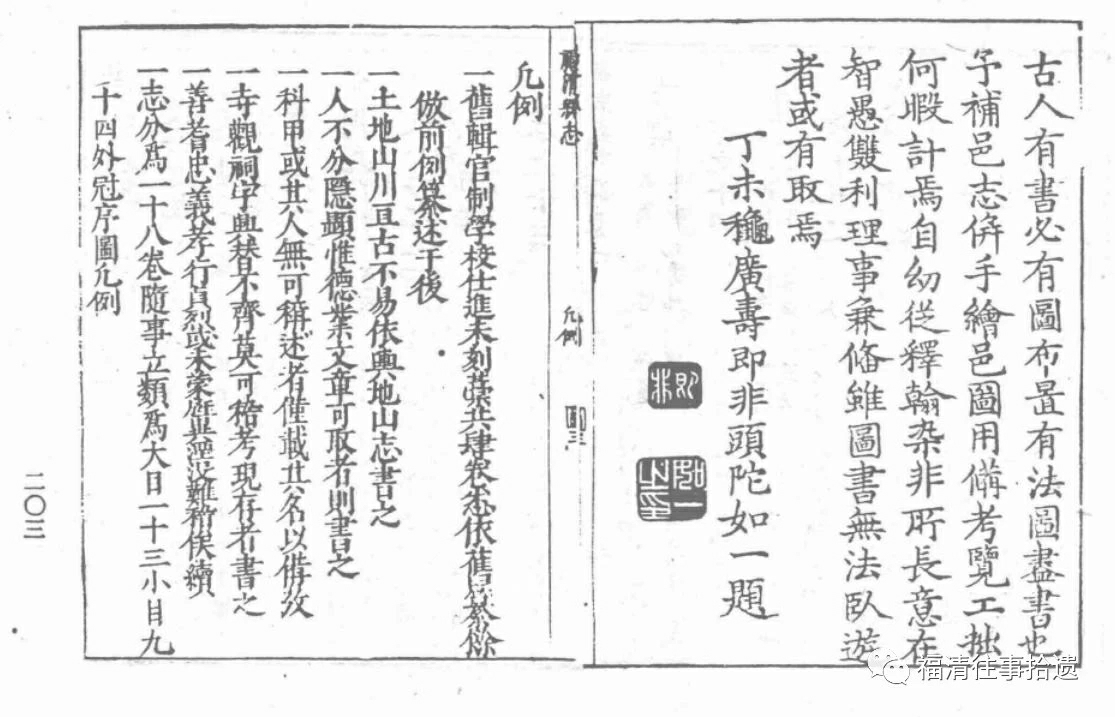 古人有書必有圖布置有法圖盡書也
予補邑志併手繪邑圖用備考覽工拙
何暇計焉自幼從釋翰染非所長意在
智愚雙利理事兼修雖圖書無法臥遊
者或有取焉
丁未龝廣壽即非頭陀如一題
即非
如一之印
福清縣志
凡例
圖三
凡例
一舊輯官制學校仕進未刻藁共肆卷悉依舊文餘
倣前例纂述于後
一土地山川亘古不易依輿地山志書之
一人不分隱顯惟德業文章可取者則書之
一科甲或其人無可稱述者僅載其名以備攷
一寺觀祠宇興替不齊莫可稽考現存者書之
一善者忠義孝行貞烈或未蒙旌與湮没難稽俟續
一志分爲一十八卷隨事立類爲大目一十三小目九
十四外冠序圖凡例
二〇三
福清往事拾遗